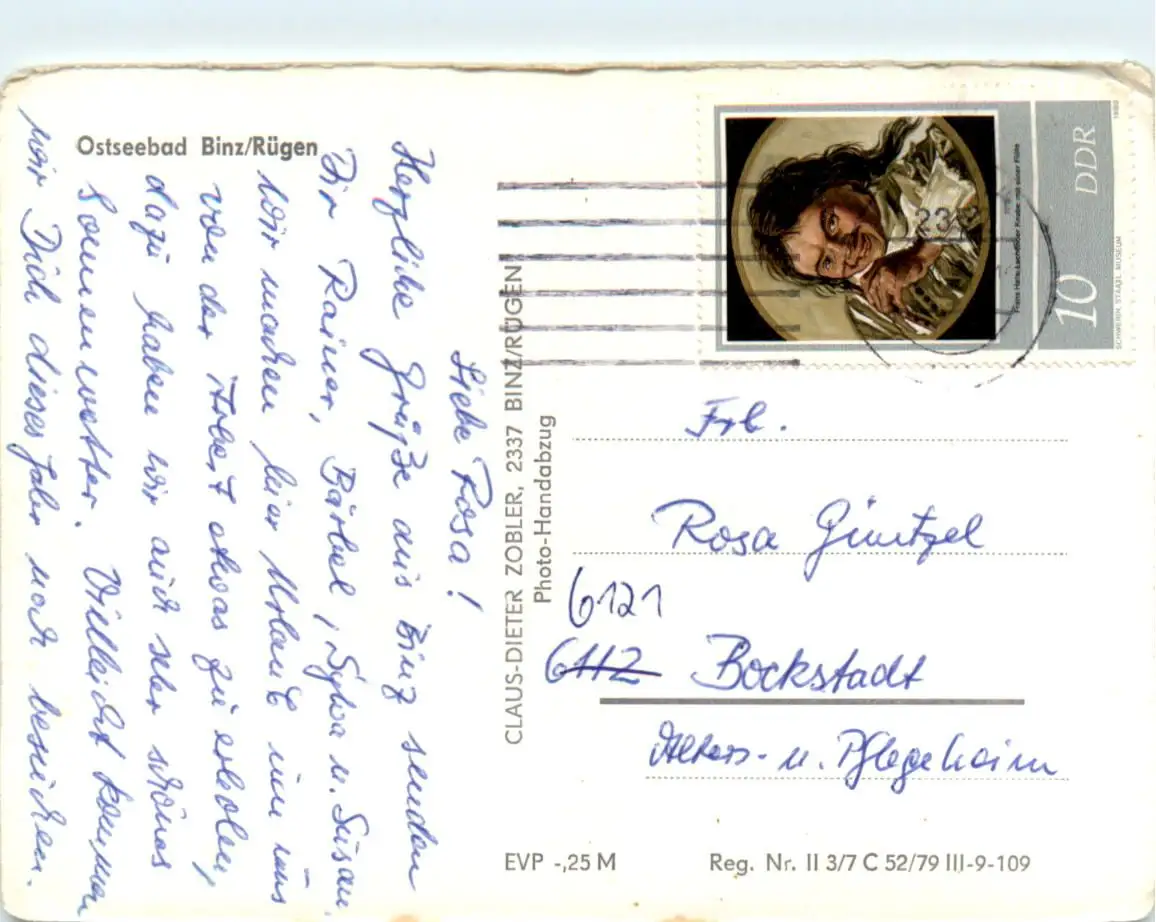 Ostseebad Binz/Rügen
Liebe Rosa!
Herzliche Grüße aus Binz senden
Dir Rainer, Bärbel, Sylva u. Susan.
Wir machen hier Urlaub um uns
von der Arbeit etwas zu erholen,
dazu haben wir auch sehr schönes
Sonnenwetter. Vielleicht kommen
wir Dich dieses Jahr noch besuchen.
CLAUS-DIETER ZOBLER, 2337 BINZ/RÜGEN
Photo-Handabzug
DDR
10
1980
Frans Hals: Lachender Knabe mit einer Flöte
SCHWERIN, STAATL. MUSEUM
Frl.
Rosa Güntzel
6121
6112 Bockstadt
Alters- u. Pflegeheim
EVP -,25 M
Reg. Nr. II 3/7 C 52/79 III-9-109